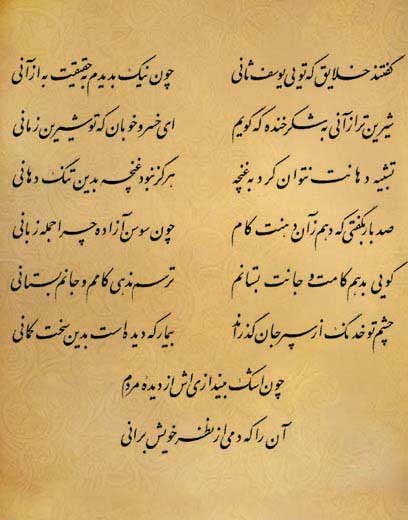 گفتند خلایق که تویی یوسف ثانی چون نیک بدیدم به حقیقت به از آنی
شیرین تر از آنی به شکرخنده که گویم ای خسرو خوبان که تو شیرین زمانی
تشبیه دهانت نتوان کرد به غنچه هرگز نبود غنچه بدین تنگ دهانی
صد بار بگفتی که دهم زان دهنت کام چون سوسن آزاده چرا جمله زبانی
گویی بدهم کامت و جانت بستانم ترسم ندهی کامم و جانم بستانی
چشم تو خدنگ از سپر جان گذراند بیمار که دیده است بدین سخت کمانی
چون اشک بیندازی اش از دیده مردم
آن را که دمی از نظر خویش برانی